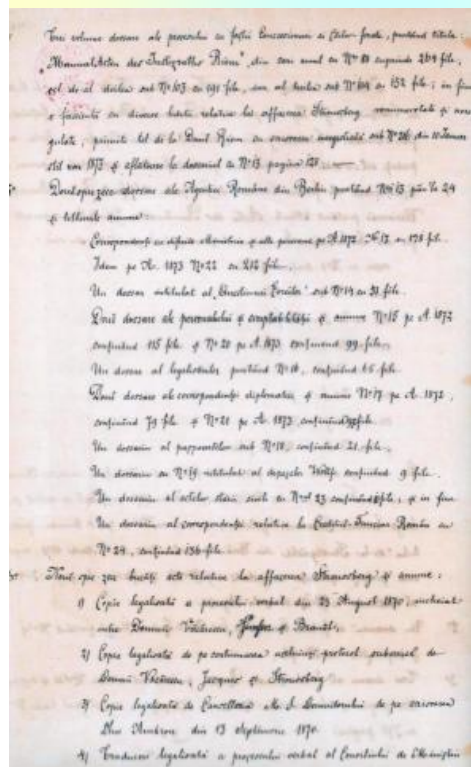 Trei volume dosare ale procesului cu foștii Concesionari ai Căilor ferate, purtând titula:
„Manual Acten des Justizrathes Riem", din care unul cu Nº 18 cuprinde 264 file,
cel de al doilea sub Nº 163 cu 191 file, iar al treilea sub Nº 164 cu 152 file; in fine
o fascicula cu diverse hârtii relative la affacerea Strousberg
primite tot de la Dnul Riem cu scrisoarea sub Nº 26 din 10 Januar
stil nou 1873 și aflătoare la dosarul cu Nº 13 pagina 128
Douăsprezece dosare ale Agenției Române din Berlin purtând Nrii 13 pân la 24
și titlurile anume:
Corespondență cu diferite Ministerii și alte persoane pe A. 1872 Nº 13 cu 178 file.
Idem pe A. 1873 Nº 22 cu 212 file.
Un dosar intitulat al „Chestiunii Evreilor" sub Nº 14 cu 31 file.
Două dosare ale personalului și comptabilității și anume Nº 15 pe A. 1872
conținând 115 file și Nº 20 pe A. 1873 conținând 99 file.
Un dosar al legalisatiilor purtând Nº 16, conținând 66 file.
Două dosare ale corespondenței diplomatice și anume Nº 17 pe A. 1872,
conținând 79 file și Nº 21 pe A. 1873, conținând file.
Un dosariu al pașapoartelor sub Nº 18, conținând 21 file.
Un dosariu cu Nº 19 intitulat al depeșelor Wolff conținând 9 file.
Un dosariu al actelor stării civile cu Nº 23 conținând file; și in fine
Un dosariu al corespondenței relative la Creditul Funciar Român cu
Nº 24, conținând 136 file.
Nouă spre zece bucăți acte relative la affacerea Strousberg și anume:
1) Copie legalisată a procesului verbal din 23 August 1870, incheiat
intre Domnii Văcărescu, și Brandt.
2) Copie legalisată de pe continuarea aceluiași protocol subscrisă de
Domnii Văcărescu, Jacques și Strousberg
3) Copie legalisată de Cancellaria M. S. Domnitorului de pe scrisoarea
Dlui Ambron din 13 Septemvrie 1870.
4) Traducere legalisată a procesului verbal al Consiliului de Miniștri